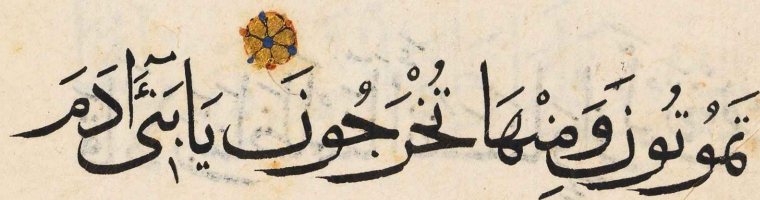 تَمُوتُونَ وَمِنْهَا تُخْرَجُونَ يَا بَنِىٓ اٰدَمَ